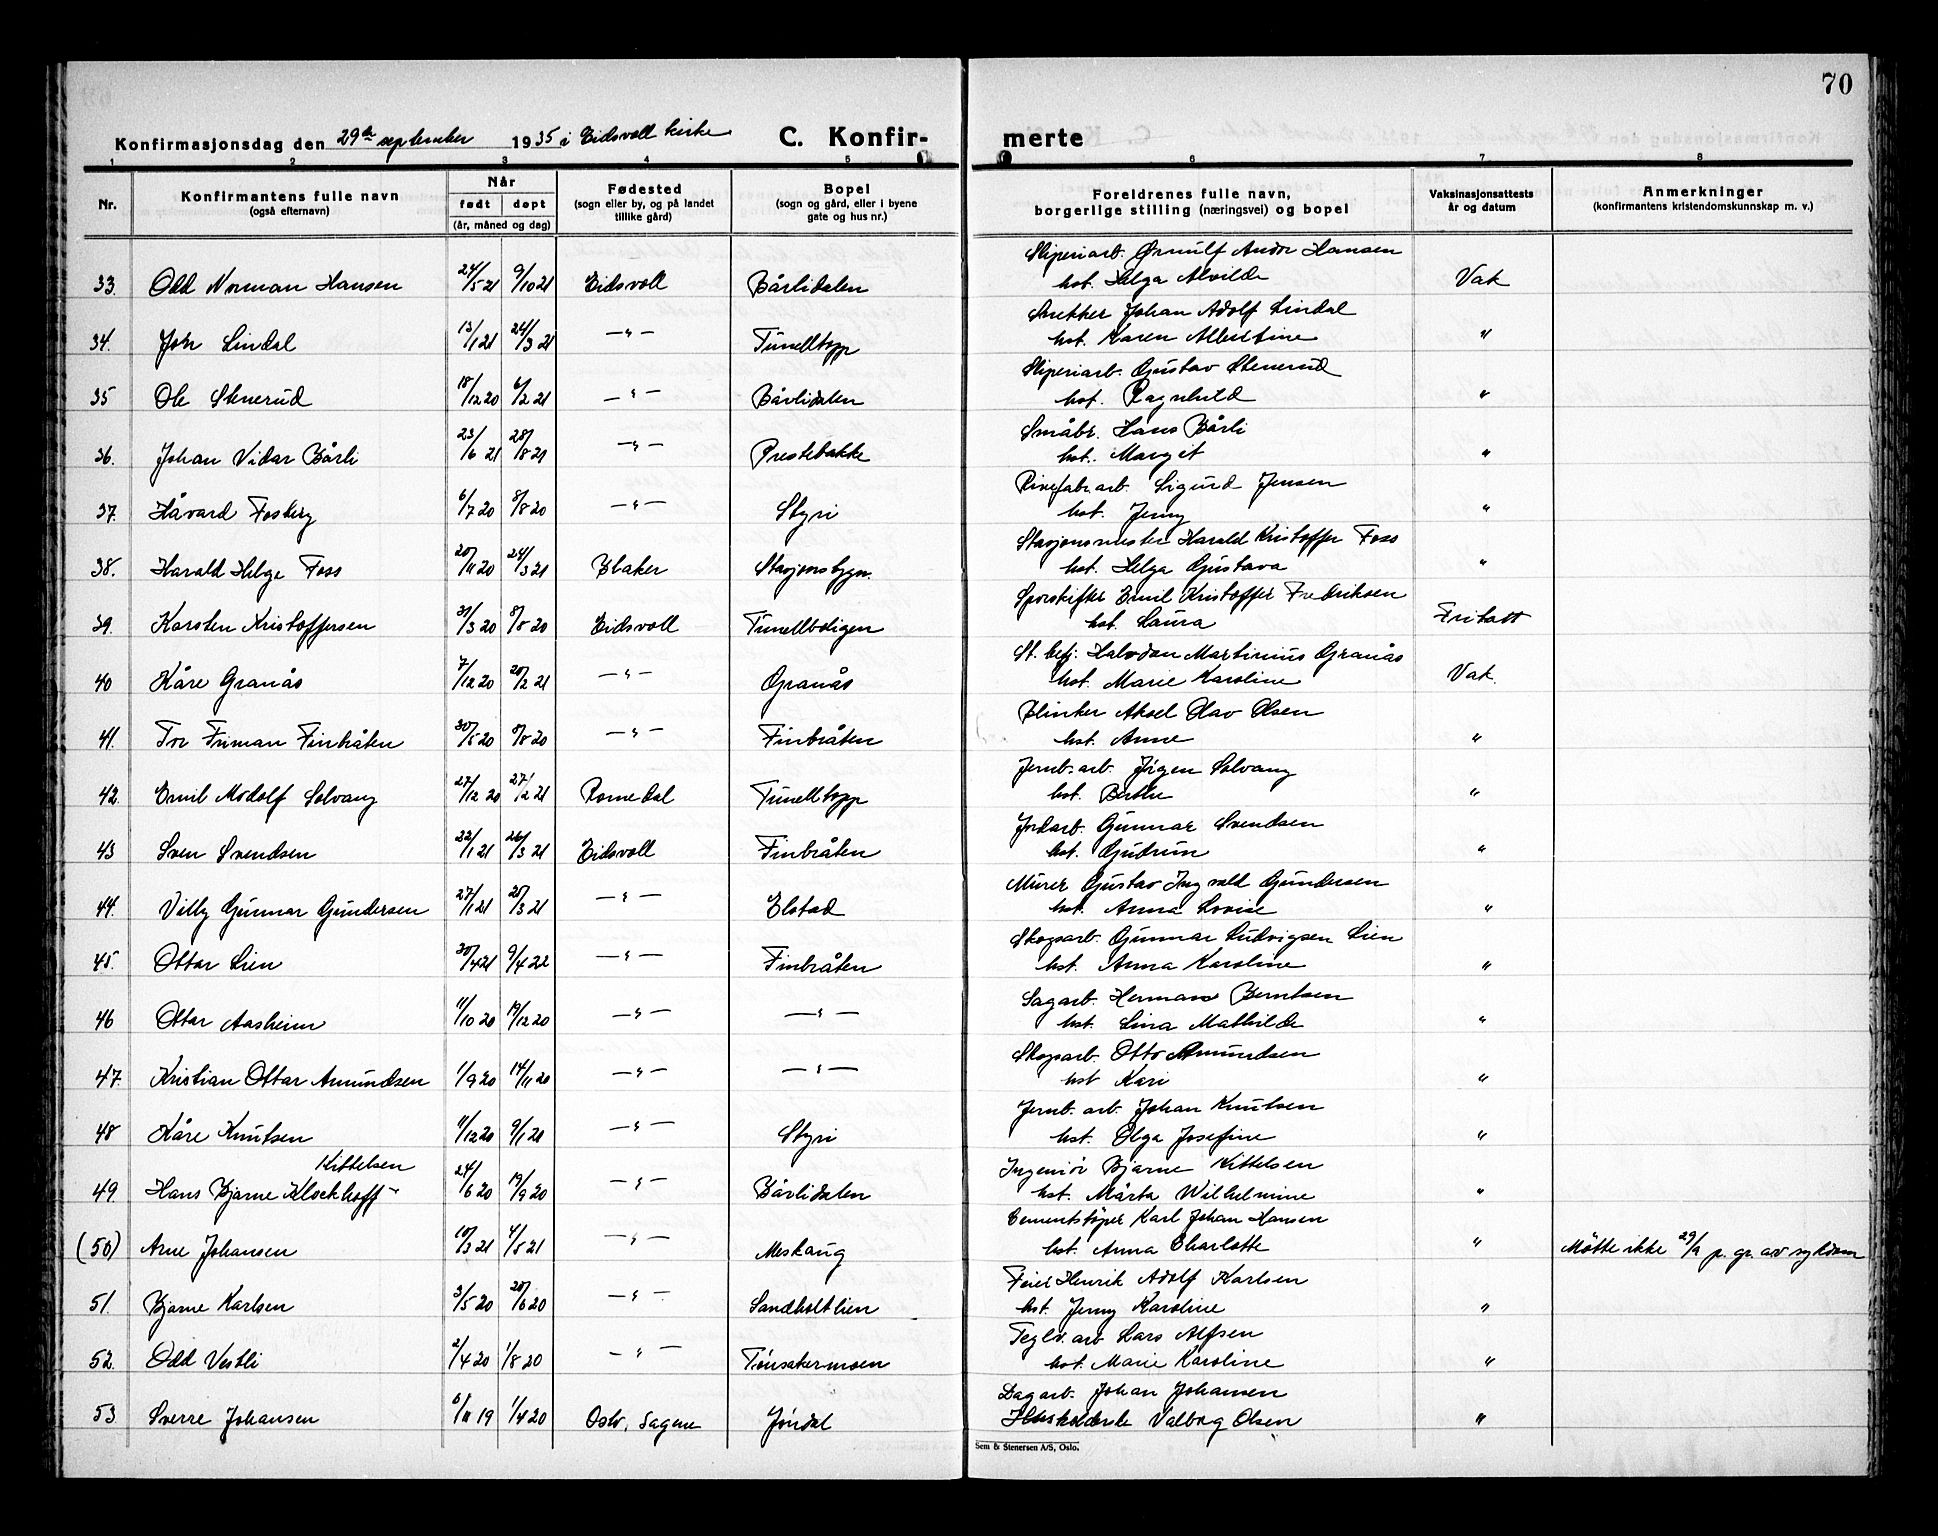 70
Konfirmasjonsdag den 29de september 1935 i Eidsvoll kirke C. Konfir- merte
1 2 3 4 5 6 7 8
Nr. Konfirmantens fulle navn (også efternavn) Når født døpt (år, måned og dag) Fødested (sogn eller by, og på landet tillike gård) Bopel (sogn og gård, eller i byene gate og hus nr.) Foreldrenes fulle navn, borgerlige stilling (næringsvei) og bopel Vaksinasjonsattests år og datum Anmerkninger (konfirmantens kristendomskunnskap m. v.)
Sliperiarb. Ørnulf Andor Hansen
33. Odd Norman Hansen 24/5 21 9/10 21 Eidsvoll Bårlidalen hst. Helga Alvilde Vak
Snekker Johan Adolf Lindal
34. John Lindal 13/1 21 24/3 21 —"— Tunelltopp hst. Karen Albertine "
Sliperiarb. Gustav Stenerud
35 Ole Stenerud 18/12 20 6/2 21 —"— Bårlidalen hst. Ragnhild "
Småbr. Hans Bårli
36. Johan Vidar Bårli 23/6 21 28/8 21 —"— Prestebakke hst. Margit "
Rivefabr.arb. Sigurd Jensen
37. Håvard Fosberg 6/7 20 8/8 20 —"— Styri hst. Jenny "
Stasjonsmester Harald Kristoffer Foss
38. Harald Helge Foss 20/11 20 24/3 21 Blaker Stasjonsbygn. hst. Helga Gustava "
Sporskifter Emil Kristoffer Fredriksen
39. Karsten Kristoffersen 31/3 20 8/8 20 Eidsvoll Tunellboligen hst. Laura Fritatt
St. betj. Halvdan Martinius Granås
40 Kåre Granås 7/12 20 20/2 21 —"— Granås hst. Marie Karoline Vak.
Blinker Aksel Olav Olsen
41. Tor Friman Finbråten 30/5 20 8/8 20 —"— Finbråten hst. Anne "
Jernb. arb. Jørgen Solvang
42. Emil Modolf Solvang 27/12 20 27/2 21 Romedal Tunelltopp hst. Berthe "
Jordarb. Gunnar Svendsen
43 Sven Svendsen 22/1 21 26/3 21 Eidsvoll Finbråten hst. Gudrun "
Murer Gustav Ingvald Gundersen
44. Villy Gunnar Gundersen 27/1 21 20/3 21 —"— Elstad hst. Anna Lovise "
Skogsarb. Gunnar Ludvigsen Lien
45. Ottar Lien 30/4 21 9/4 22 —"— Finbråten hst. Anna Karoline "
Sagarb. Herman Berntsen
46 Ottar Aasheim 11/10 20 19/12 20 —"— —"— hst. Lina Mathilde "
Skogsarb. Otto Amundsen
47. Kristian Ottar Amundsen 1/9 20 14/11 20 —"— —"— hst Kari "
Jernb. arb. Johan Knutsen
48 Kåre Knutsen 11/12 20 9/1 21 —"— Styri hst. Olga Josefine "
Kittelsen Ingeniør Bjarne Kittelsen
49. Hans Bjarne Klockhoff- 24/6 20 19/9 20 —"— Bårlidalen hst. Märta Wilhelmine "
Cementstøper Karl Johan Hansen
(50) Arne Johansen 10/3 21 4/5 21 —"— Meskaug hst. Anna Charlotte " Møtte ikke 29/9 p. gr. av sykdom
Feier Henrik Adolf Karlsen
51. Bjarne Karlsen 3/5 20 20/6 20 —"— Sandholtlien hst. Jenny Karoline "
Teglv. arb Lars Alfsen
52. Odd Vestli 2/4 20 1/8 20 —"— Tønsakermoen hst. Marie Karoline "
Dagarb. Johan Johansen
53. Sverre Johansen 6/11 19 1/4 20 Oslo, Sagene Jøndal Husholderske Valborg Olsen "
Sem & Stenersen A/S, Oslo.